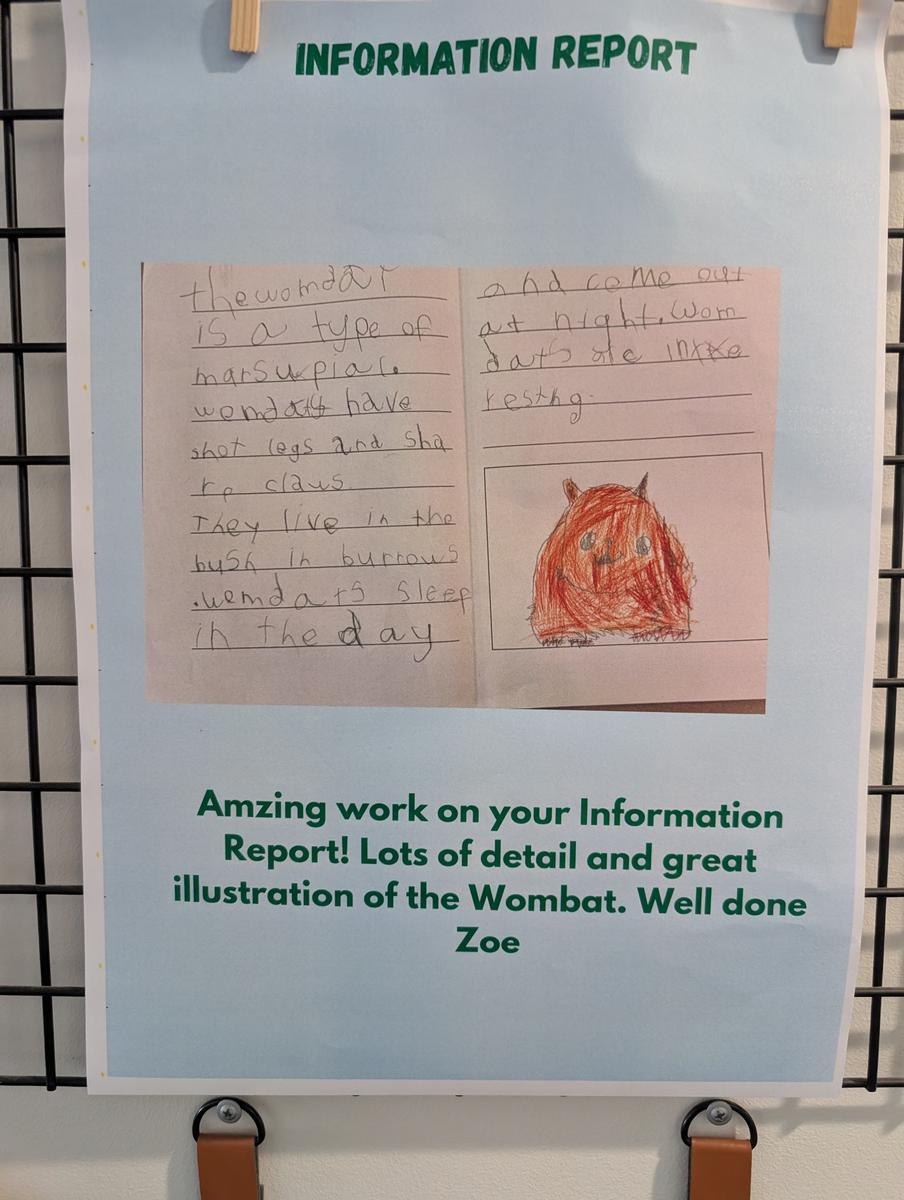 INFORMATION REPORT
thewomdat
is a type of
marsupial.
wemdats have
shot legs and sha
rp claws
They live in the
bush in burrows
.wemdats sleep
in the day
and come out
at night. Wom
dats are inxxe
resting.
Amzing work on your Information
Report! Lots of detail and great
illustration of the Wombat. Well done
Zoe